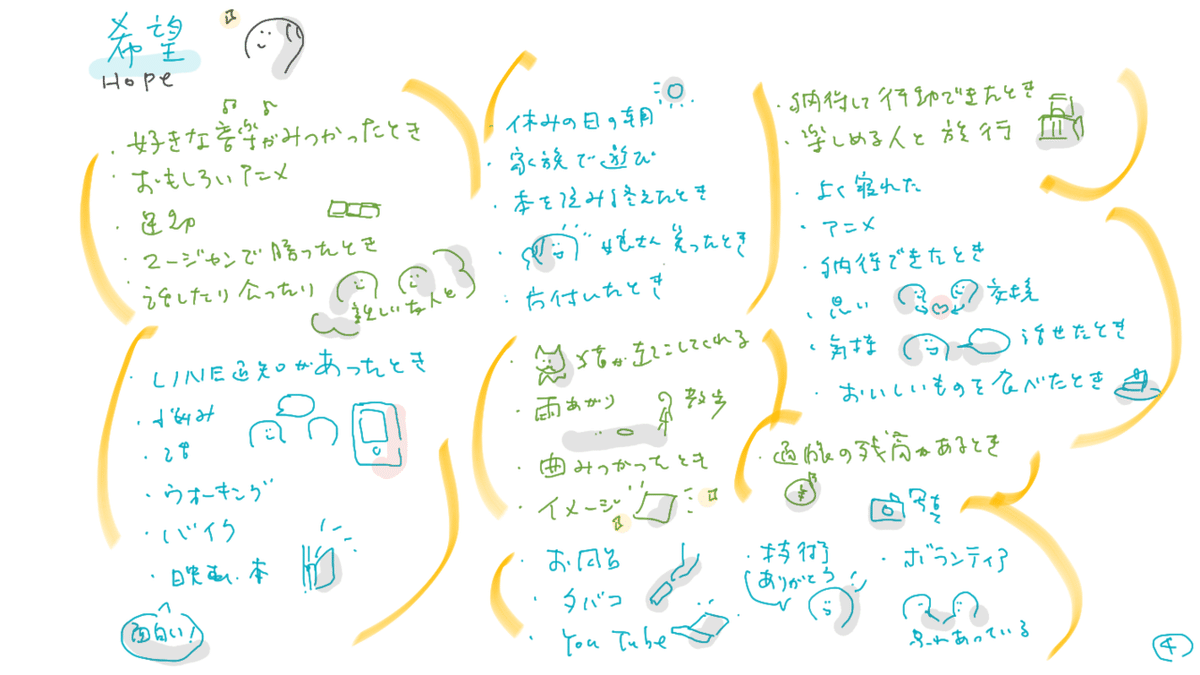 希望
Hope
・好きな音楽がみつかったとき
・おもしろいアニメ
・運動
・マージャンで勝ったとき
・話したり会ったり
親しい友人と
・LINE通知があったとき
・ウオーキング
・バイク
・映画、本
面白い!
・休みの日の朝
・家族で遊び
・本を読み終えたとき
・娘さん笑ったとき
・片付いたとき
・猫が起こしてくれる
・雨あがり 散歩
・曲みつかったとき
・イメージ
・お風呂
・タバコ
・You Tube
・納得して行動できたとき
・楽しめる人と旅行
・よく寝れた
・アニメ
・納得できたとき
・思い 交換
・気持 話せたとき
・おいしいものを食べたとき
・通帳の残高があるとき
¥
ありがとう
・ボランティア
ふれあっている
4